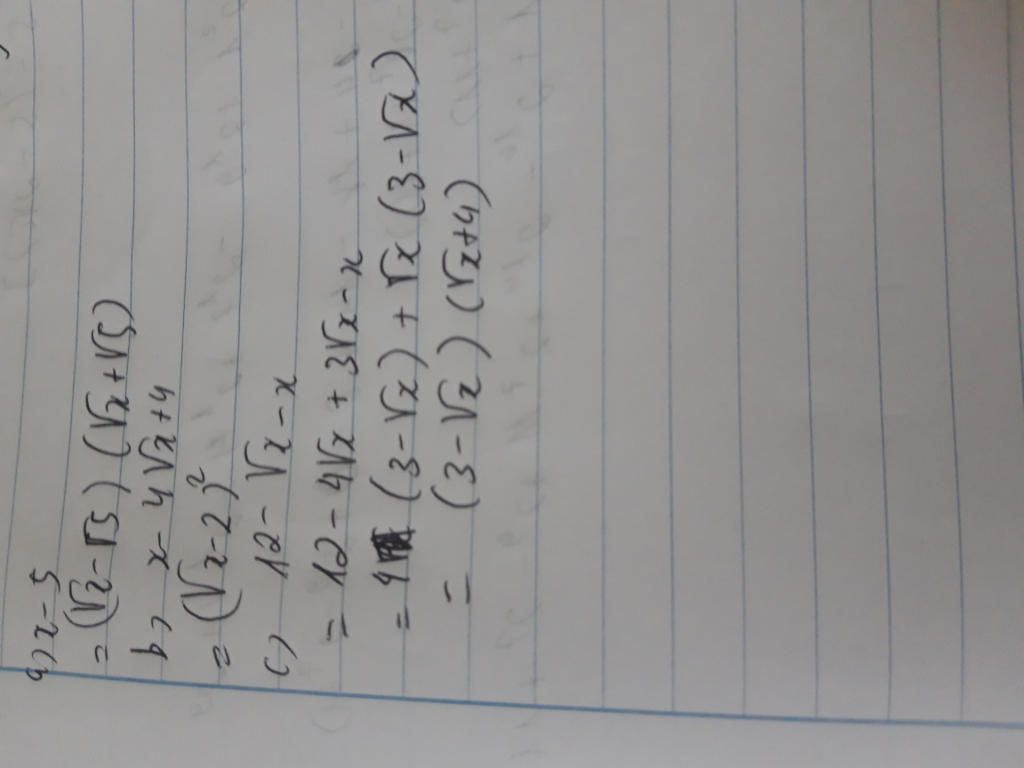 a) x-5
= (√x-√5) (√x+√5)
b) x-4√x+4
= (√x-2)²
c) 12-√x-x
= 12-4√x+3√x-x
= 4 (3-√x) + √x (3-√x)
= (3-√x) (√x+4)